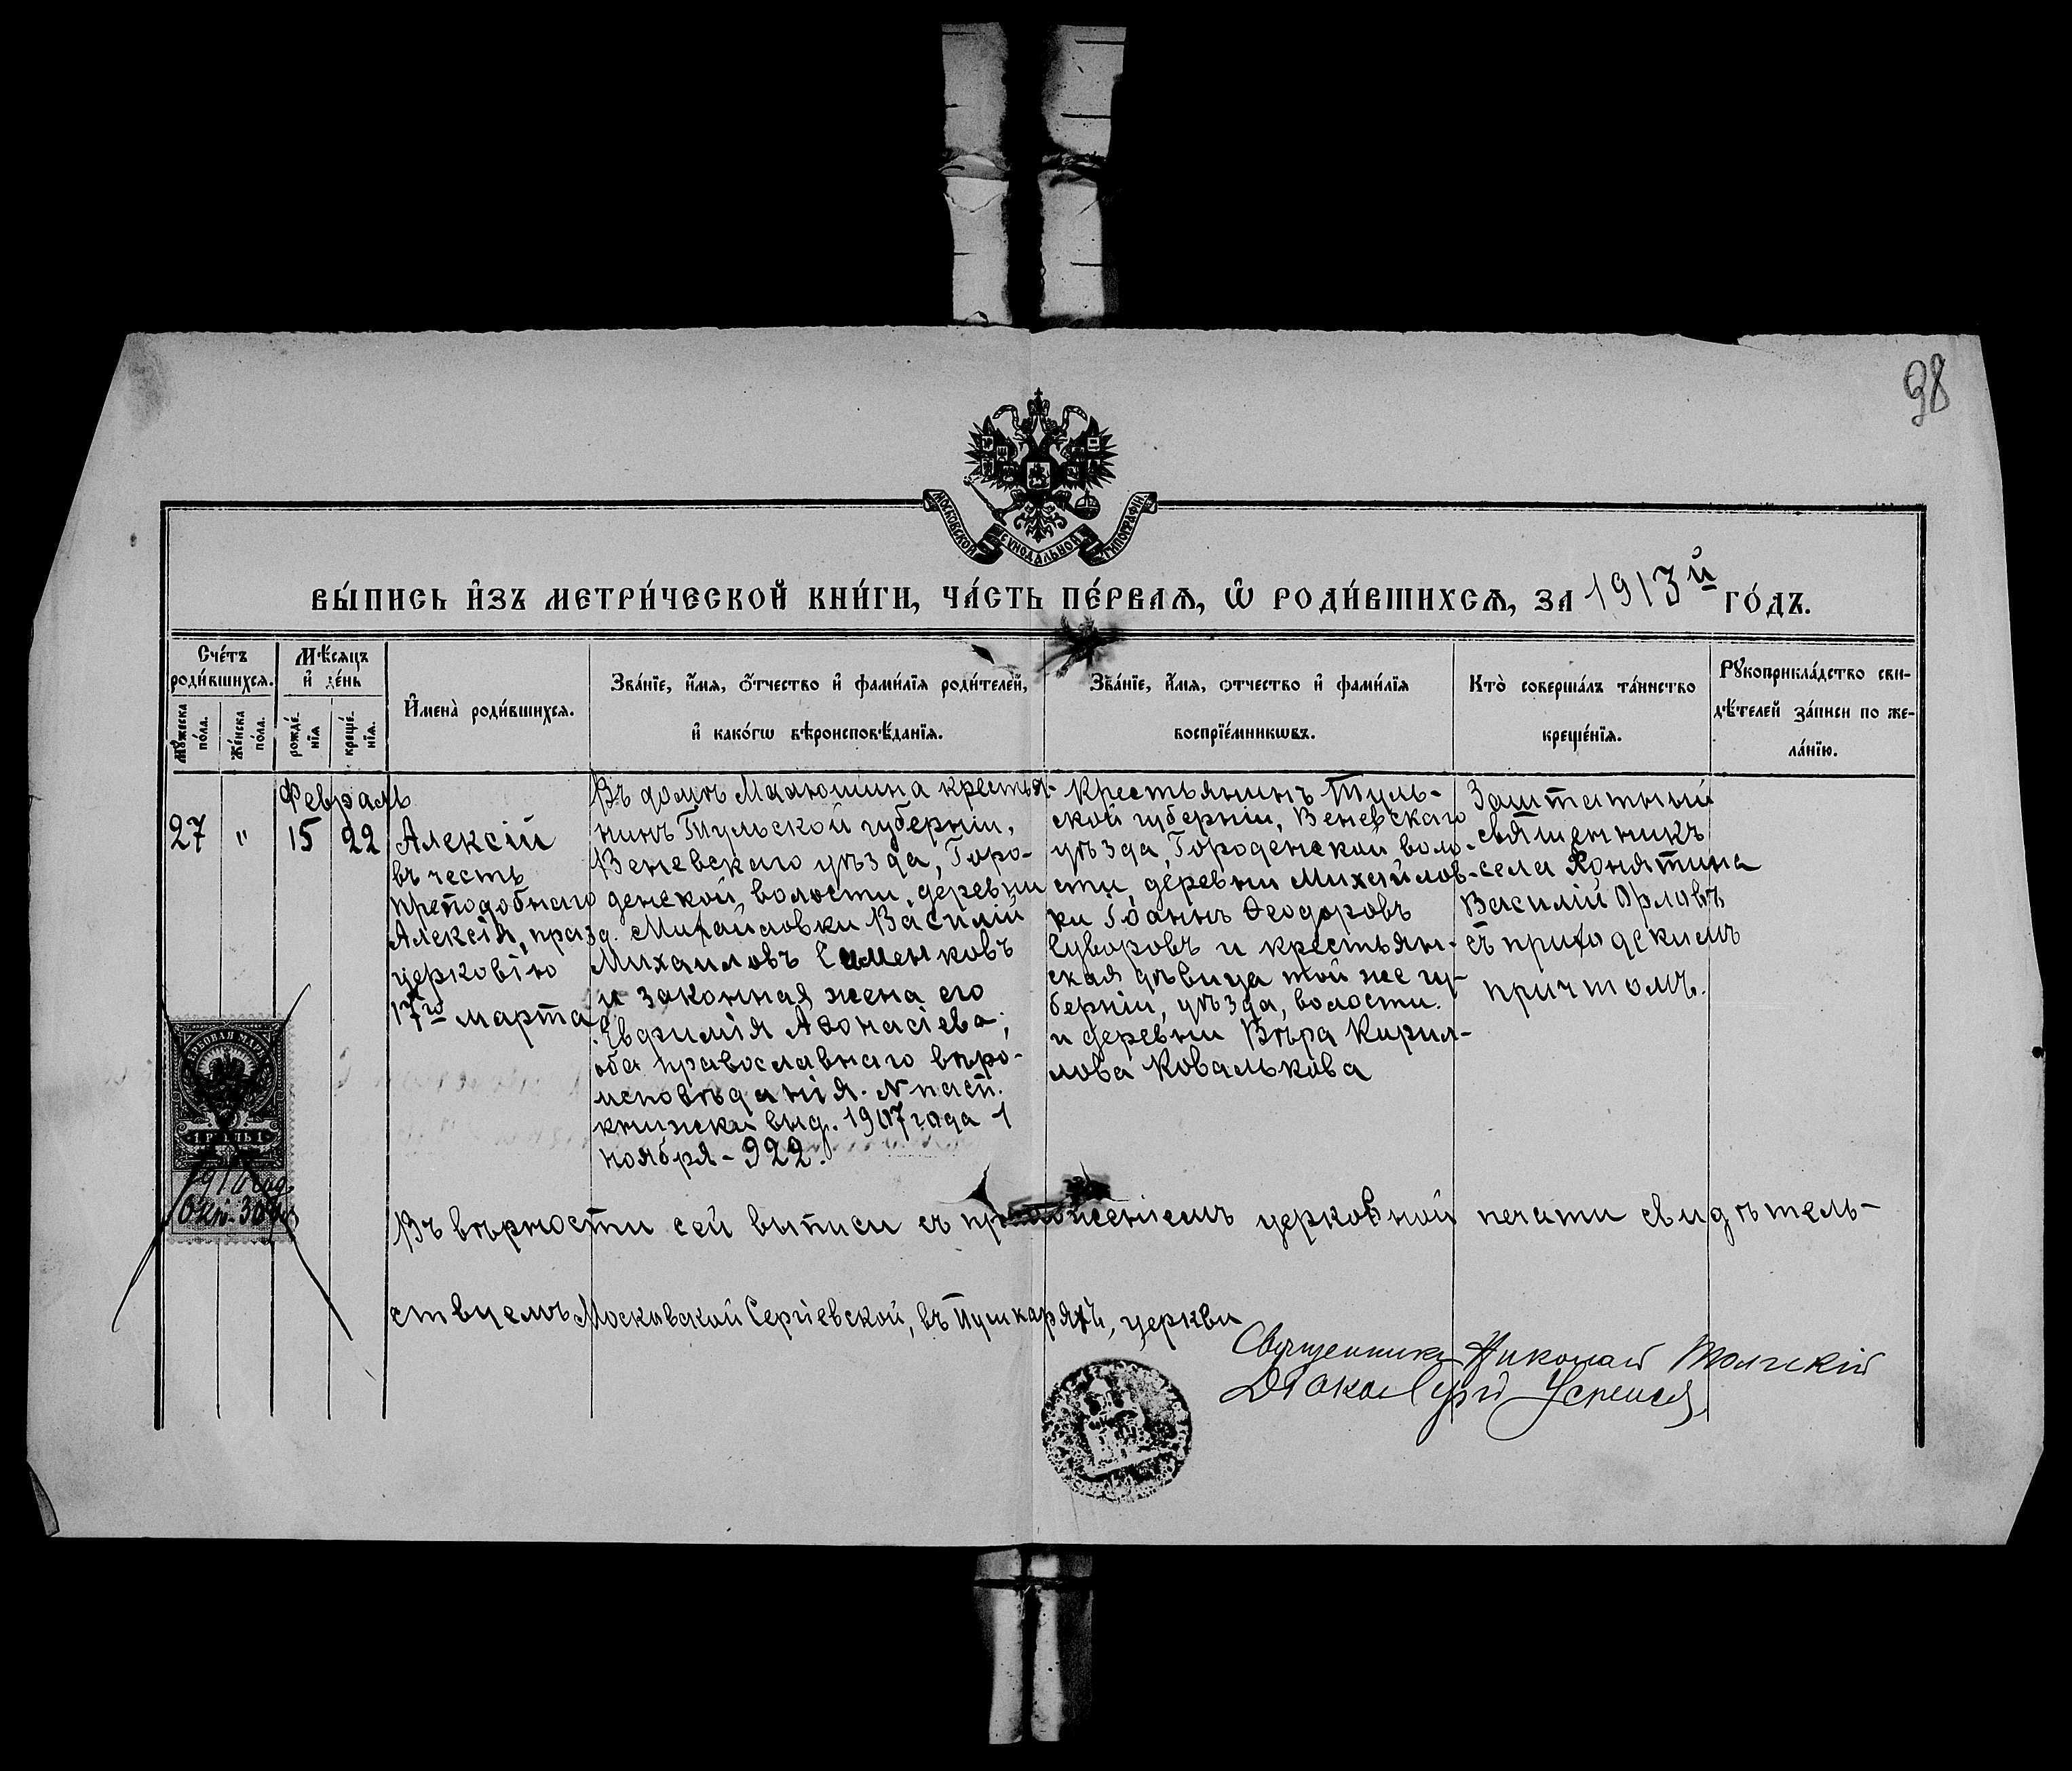 98
МОСКОВСКОЙ СѴНОДАЛЬНОЙ ТИПОГРАФІИ
ВЫ́ПИСЬ И҆ЗЪ МЕТРИ́ЧЕСКОЙ КНИ́ГИ, ЧА́СТЬ ПЕ́РВАѦ, Ѡ҆ РОДИ́ВШИХСѦ, ЗА 1913й ГО́ДЪ.
Сче́тъ
роди́вшихсѧ.
Мѣ́сѧцъ
и҆ де́нь
Мꙋ́жеска
по́ла.
Же́нска
по́ла.
рожде́-
нїѧ
креще́-
нїѧ.
И҆мена̀ роди́вшихсѧ.
Зва́нїе, и҆́мѧ, ѻ҆́тчество и҆ фами́лїѧ роди́телей,
и҆ како́гѡ вѣроисповѣ́данїѧ.
Зва́нїе, и҆́мѧ, ѻтчество и҆ фами́лїѧ
воспрїе́мникѡвъ.
Кто̀ соверша́лъ та́инство
креще́нїѧ.
Рꙋкоприкла́дство сви-
дѣ́телей за́писи по же-
ла́нїю.
Февраль
27 " 15 22
Алексій
въ честь
преподобнаго
Алексія, празд.
церковію
17го марта
Въ домѣ Малюшина крестья-
нинъ Тульской губерніи,
Веневскаго уѣзда, Горо-
денской волости, деревни
Михайловки Василій
Михаиловъ Семенковъ
и законная жена его
Евфимія Аѳонасіева;
оба православнаго вѣро-
исповѣданія. № пасп.
книжки выд. 1907 года 1
ноября - 922.
Крестьянинъ Туль-
ской губерніи, Веневскаго
уѣзда, Городенской воло-
сти, деревни Михайлов-
ки Іоаннъ Ѳеодоровъ
Суворовъ и крестьян-
ская дѣвица той же гу-
берніи, уѣзда, волости
и деревни Вѣра Кирил-
лова Ковалькова
Заштатный
священникъ
села Хонятина
Василій Орловъ
съ приходскимъ
причтомъ.
ГЕРБОВАЯ МАРКА
1 РУБЛЬ 1
Окт. 30
Въ вѣрности сей выписи съ приложеніемъ церковной печати свидѣтель-
ствуемъ Московской Сергіевской, въ Пушкаряхъ, церкви
Священникъ Николай Толгскій